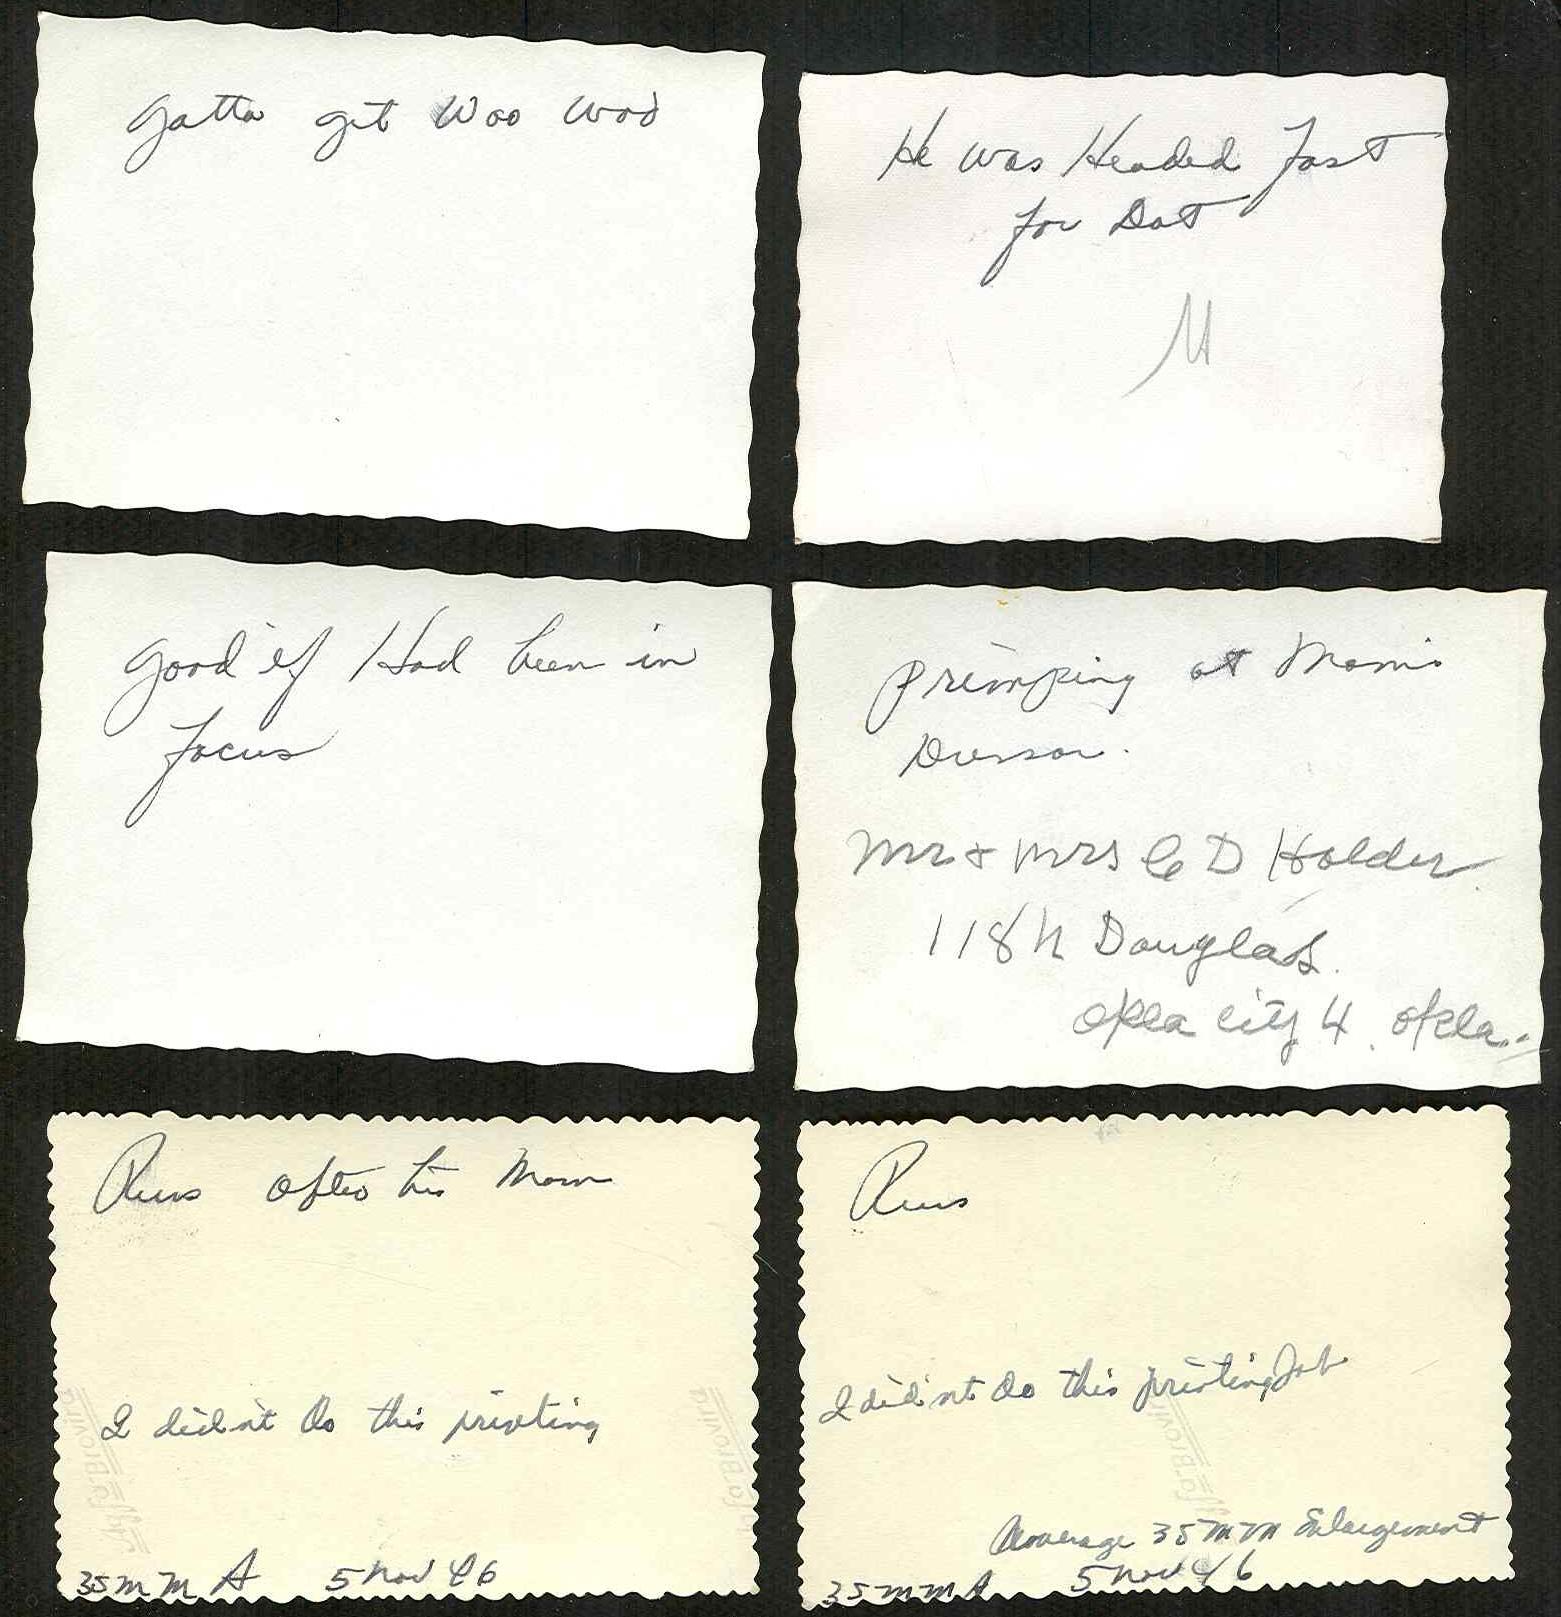 Gatta get Woo Woo
He was Headed Fast
for Dat
M
Good if Had been in
Focus
Primping at Mom's
Dressor.
Mr & Mrs C D Holder.
118 N Douglas.
Okla City 4. Okla..
Russ after his Mom
I didn't Do this printing
35 MM A 5 Nov 46
Russ
I didn't Do this printing Job
Average 35 MM Enlargement
35 MM A 5 Nov 46